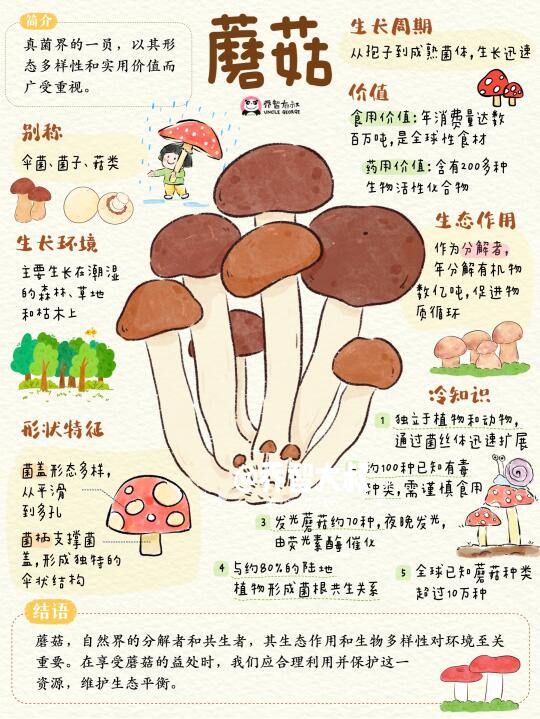 简介
真菌界的一员，以其形
态多样性和实用价值而
广受重视。
蘑菇
乔智大叔
UNCLE GEORGE
生长周期
从孢子到成熟菌体，生长迅速
价值
食用价值：年消费量达数
百万吨，是全球性食材
药用价值：含有200多种
生物活性化合物
别称
伞菌、菌子、菇类
生长环境
主要生长在潮湿
的森林、草地
和枯木上
生态作用
作为分解者，
年分解有机物
数亿吨，促进物
质循环
形状特征
菌盖形态多样，
从平滑
到多孔
菌柄支撑菌
盖，形成独特的
伞状结构
冷知识
1 独立于植物和动物，
通过菌丝体迅速扩展
约100种已知有毒
种类，需谨慎食用
3 发光蘑菇约70种，夜晚发光，
由荧光素酶催化
4 与约80%的陆地
植物形成菌根共生关系
5 全球已知蘑菇种类
超过10万种
结语
蘑菇，自然界的分解者和共生者，其生态作用和生物多样性对环境至关
重要。在享受蘑菇的益处时，我们应合理利用并保护这一
资源，维护生态平衡。